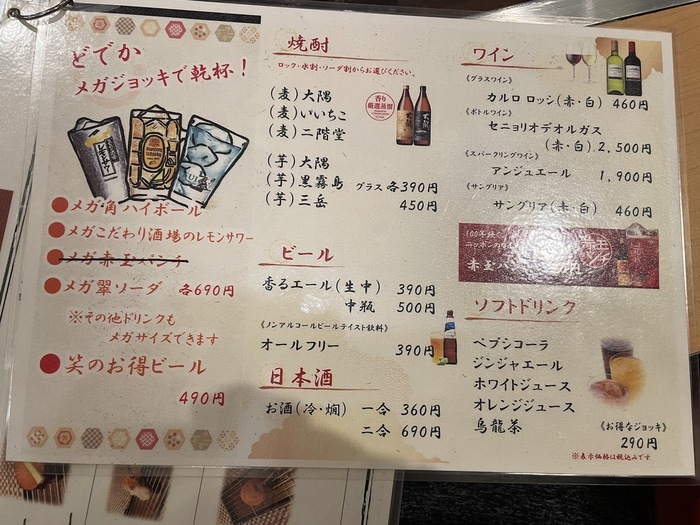 どでか
メガジョッキで乾杯！
●メガ角ハイボール
●メガこだわり酒場のレモンサワー
●メガ赤玉パンチ
●メガ翠ソーダ 各690円
※その他ドリンクも
メガサイズできます
●笑のお得ビール
490円
焼酎
ロック・水割・ソーダ割からお選びください。
(麦)大隅
(麦)いいちこ
(麦)二階堂
香り
厳選蒸留
(芋)大隅
(芋)黒霧島 グラス 各390円
(芋)三岳 450円
ビール
香るエール(生中) 390円
中瓶 500円
《ノンアルコールビールテイスト飲料》
オールフリー 390円
日本酒
お酒(冷・燗) 一合 360円
二合 690円
ワイン
《グラスワイン》
カルロ ロッシ(赤・白) 460円
《ボトルワイン》
セニョリオデオルガス
(赤・白) 2,500円
《スパークリングワイン》
アンジュエール 1,900円
《サングリア》
サングリア(赤・白) 460円
100年続く
ニッポンの
赤玉パンチ
ソフトドリンク
ペプシコーラ
ジンジャエール
ホワイトジュース
オレンジジュース
烏龍茶 《お得なジョッキ》
290円
※表示価格は税込みです